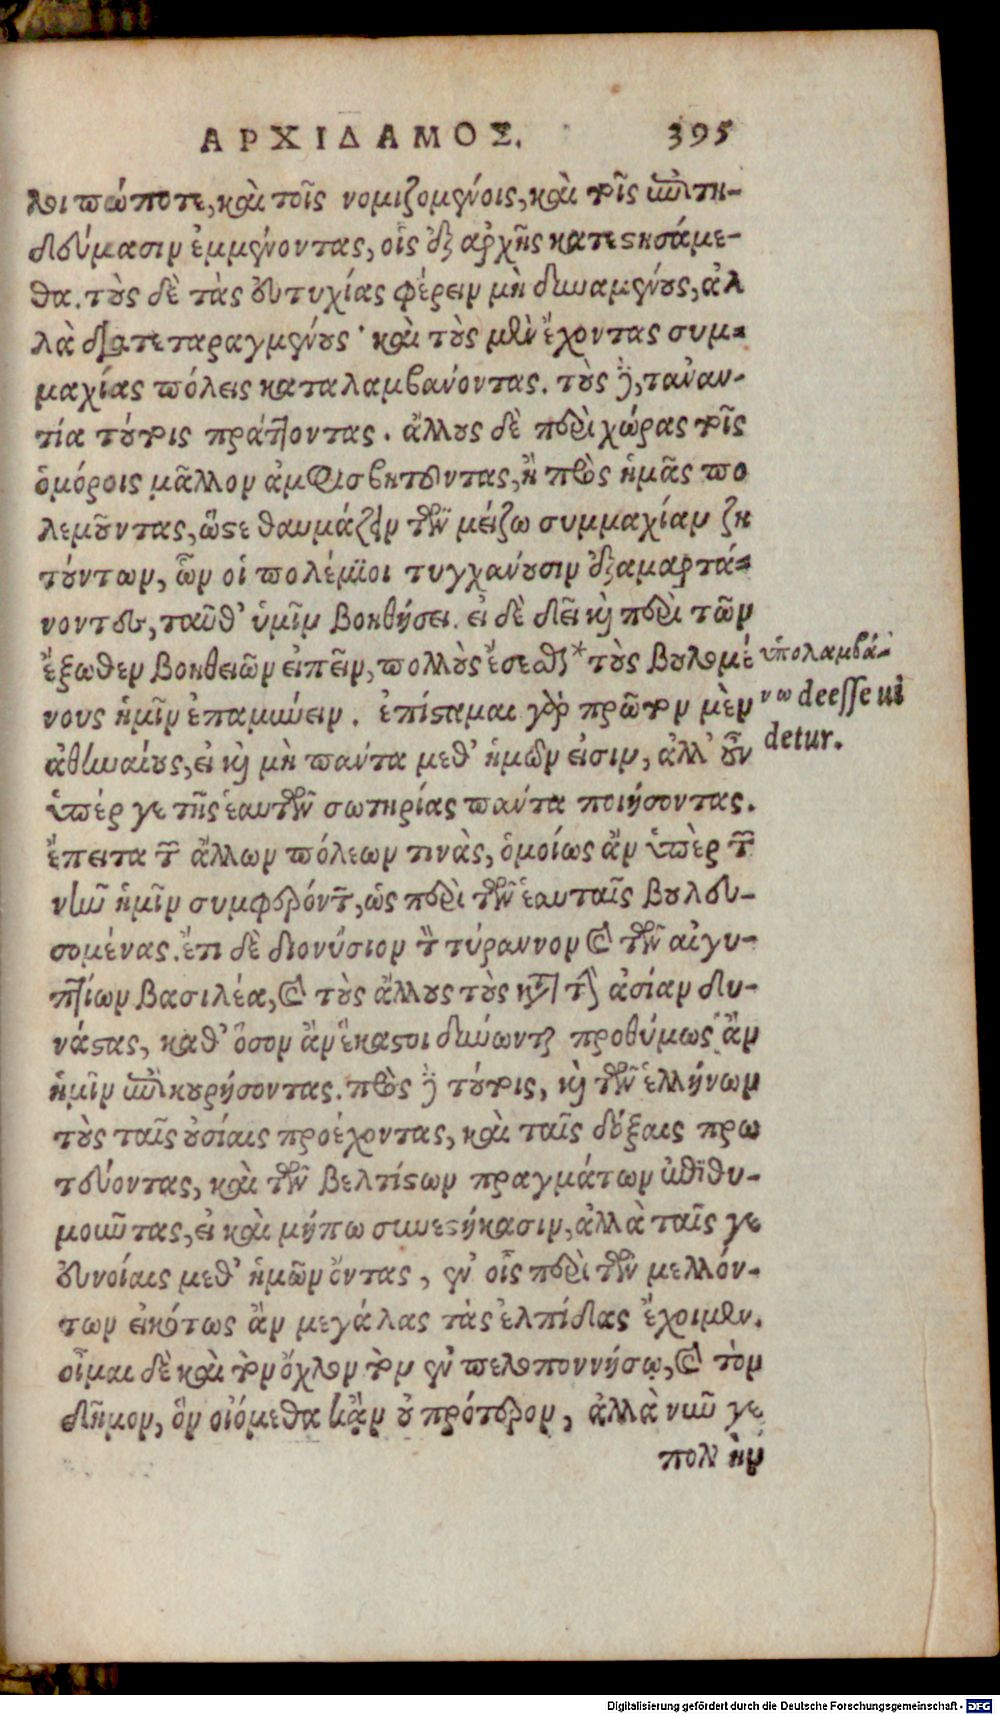 ΑΡΧΙΔΑΜΟΣ. 395
λοι πώποτε, καὶ τοῖς νομιζομένοις, καὶ τοῖς ἐπιτη-
δεύμασιν ἐμμένοντας, οἷς ἐξ ἀρχῆς κατεστησάμε-
θα. τοὺς δὲ τὰς εὐτυχίας φέρειν μὴ δυναμένους, ἀλ
λὰ διατεταραγμένους· καὶ τοὺς μὲν ἔχοντας συμ-
μαχίας πόλεις καταλαμβάνοντας. τοὺς δὲ, ταναν-
τία τούτοις πράττοντας. ἄλλους δὲ περὶ χώρας τοῖς
ὁμόροις μᾶλλον ἀμφισβητοῦντας, ἢ πρὸς ἡμᾶς πο
λεμοῦντας, ὥστε θαυμάζειν τῶν μείζω συμμαχίαν ζη
τούντων, ὧν οἱ πολέμιοι τυγχάνουσιν ἐξαμαρτά-
νοντες, ταῦθ' ὑμῖν βοηθήσει. εἰ δὲ δεῖ καὶ περὶ τῶν
ἔξωθεν βοηθειῶν εἰπεῖν, πολλοὺς ἔσεσθαι * τοὺς βουλομέ
νους ἡμῖν ἐπαμύνειν. ἐπίσταμαι γὰρ πρῶτον μὲν
ἀθηναίους, εἰ καὶ μὴ πάντα μεθ' ἡμῶν εἰσιν, ἀλλ' οὖν
ὑπέρ γε τῆς ἑαυτῶν σωτηρίας πάντα ποιήσοντας.
ἔπειτα τῶν ἄλλων πόλεων τινὰς, ὁμοίως ἂν ὑπὲρ τῶν
νῦν ἡμῖν συμφερόντων, ὡς περὶ τῶν ἑαυταῖς βουλευ-
σομένας. ἔτι δὲ διονύσιον τὸν τύραννον καὶ τῶν αἰγυ-
πτίων βασιλέα, καὶ τοὺς ἄλλους τοὺς κατὰ τὴν ἀσίαν δυ-
νάστας, καθ' ὅσον ἂν ἕκαστοι δύνωνται προθύμως ἂν
ἡμῖν ἐπικουρήσοντας. πρὸς δὲ τούτοις, καὶ τῶν ἑλλήνων
τοὺς ταῖς οὐσίαις προέχοντας, καὶ ταῖς δόξαις πρω
τεύοντας, καὶ τῶν βελτίστων πραγμάτων ἐπιθυ-
μοῦντας, εἰ καὶ μήπω συνεστήκασιν, ἀλλὰ ταῖς γε
εὐνοίαις μεθ' ἡμῶν ὄντας, ἐν οἷς περὶ τῶν μελλόν-
των εἰκότως ἂν μεγάλας τὰς ἐλπίδας ἔχοιμεν.
οἶμαι δὲ καὶ τὸν ὄχλον τὸν ἐν πελοποννήσῳ, καὶ τὸν
δῆμον, ὃν οἰόμεθα κἂν οὐ πρότερον, ἀλλὰ νῦν γε
πολλὴν
ὑπολαμβά-
νω deesse ui
detur.
Digitalisierung gefördert durch die Deutsche Forschungsgemeinschaft - DFG